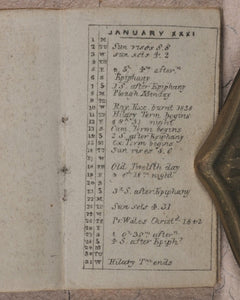 JANUARY XXXI
1 M
2 Tu Sun rises 8.8
3 W Sun sets 4.2
4 Th
5 F 5h 4m aftern
6 S Epiphany
7 S 1 S. after Epiphany
8 M Plough Monday
9 Tu
10 W Roy. Exc. burnt 1838
11 Th Hilary Term begins
12 F night
13 S Cam. Term begins
14 S 2 S. after Epiphany
15 M Ox. Term begins
16 Tu Sun rises
17 W
18 Th Old Twelfth day
19 F night
20 S
21 S 3d S. after Epiphany
22 M
23 Tu Sun sets 4.31
24 W
25 Th Pr. Wales Christd 1842
26 F
27 S 0h 35m after
28 S 4 S. aft Epiph
29 M
30 Tu
31 W Hilary Tm ends